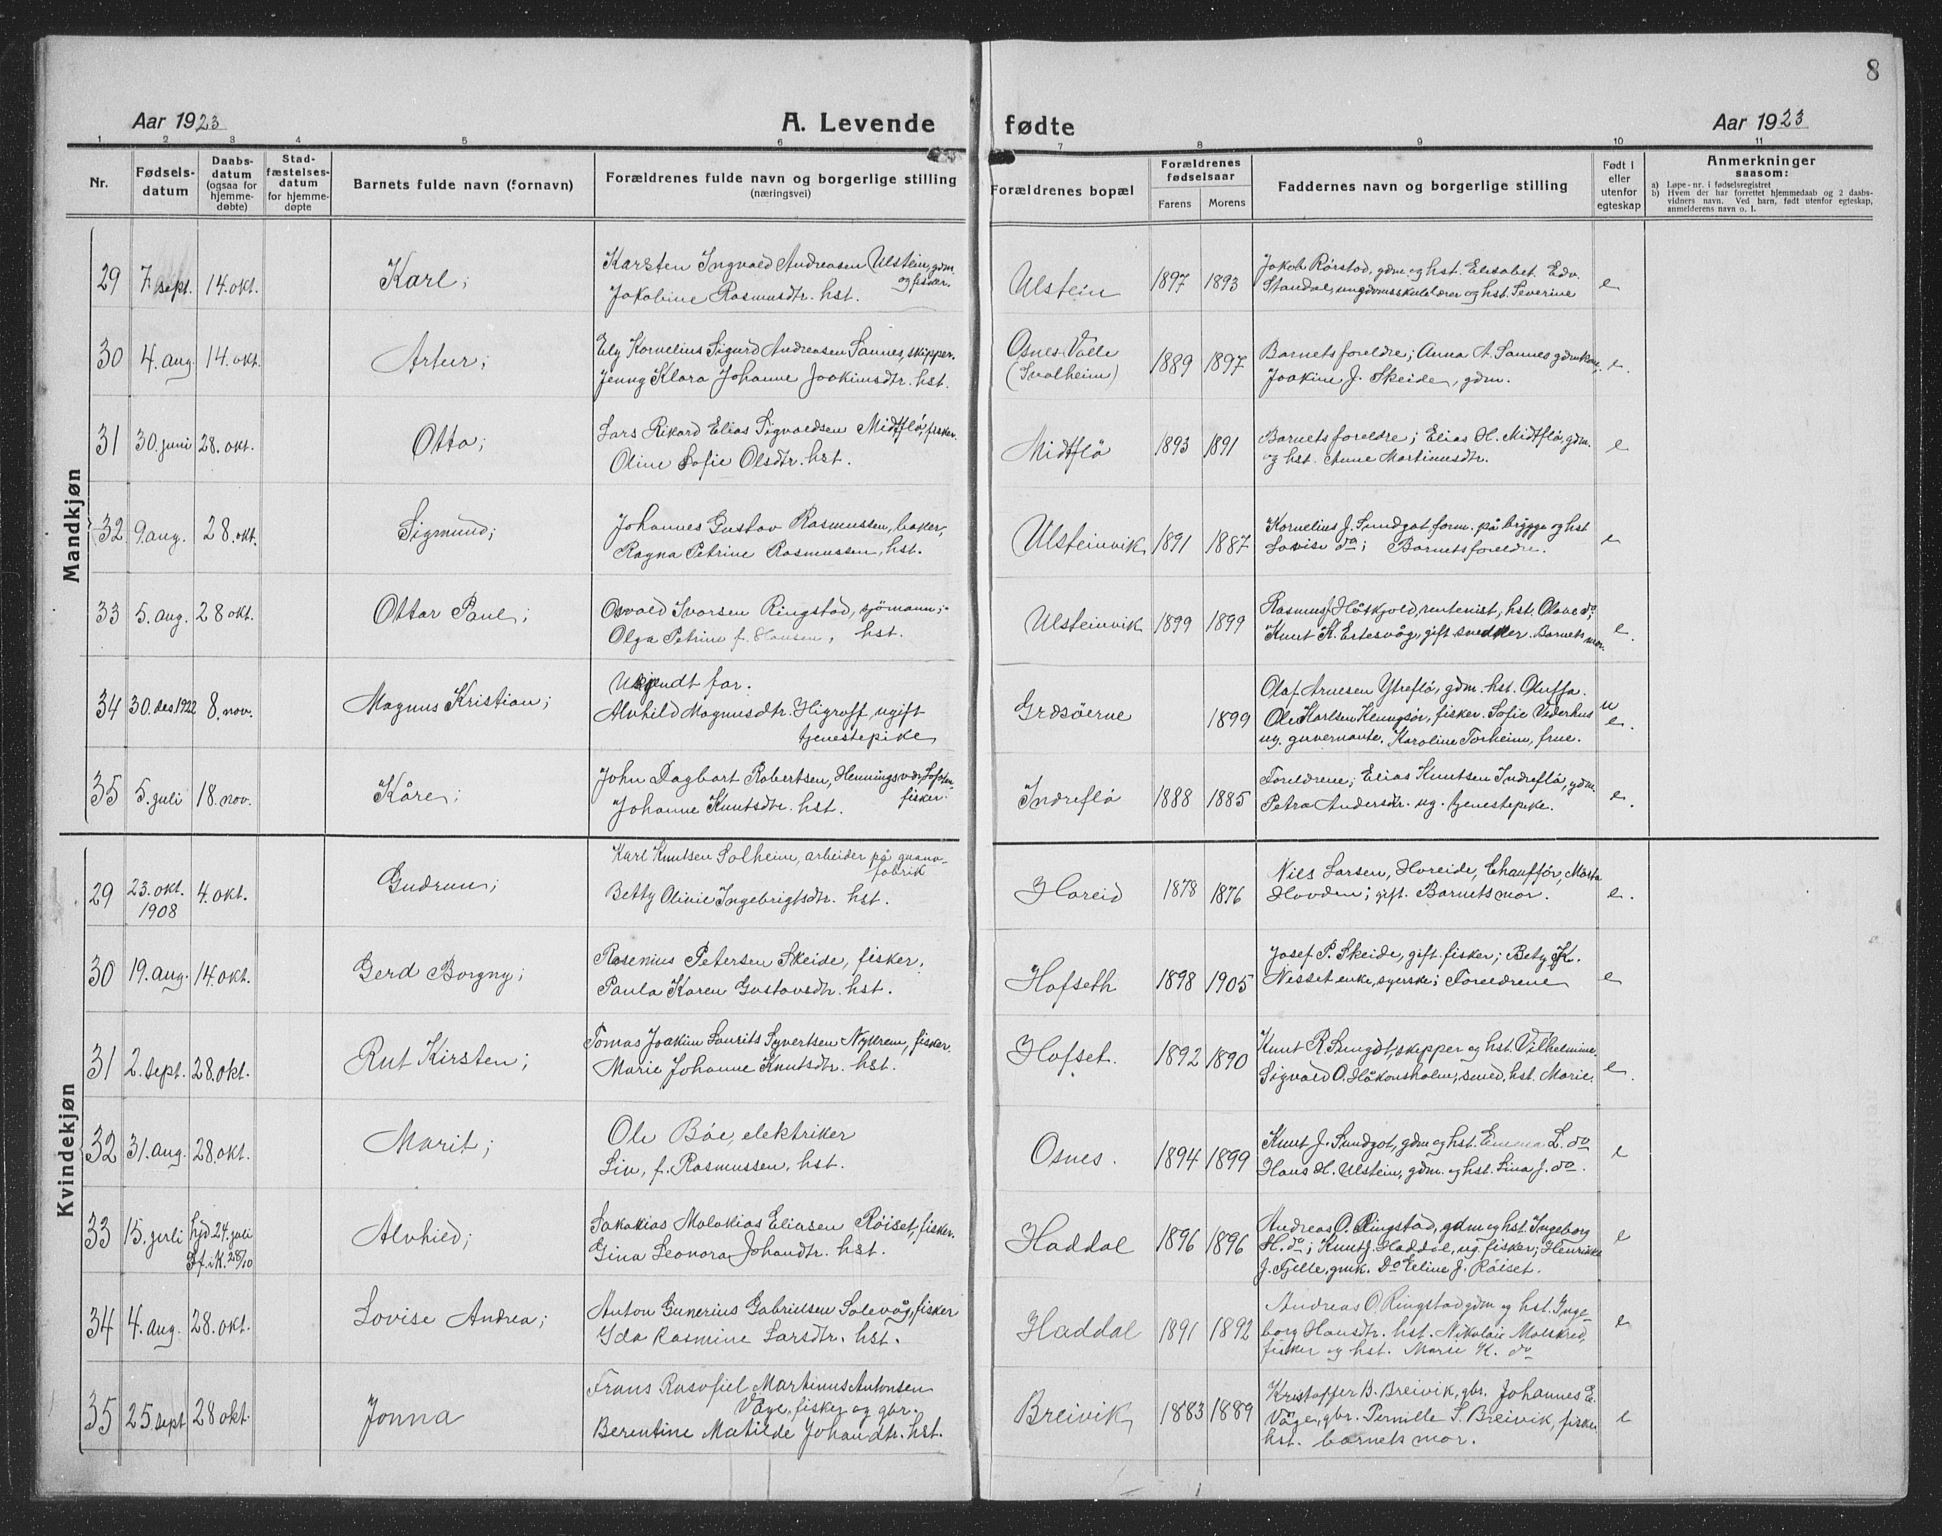 8
Aar 1923
A. Levende
fødte
Aar 1923
1 2 3 4 5 6 7 8 9 10 11
Nr.
Fødsels-
datum
Daabs-
datum
(ogsaa for
hjemme-
døbte)
Stad-
fæstelses-
datum
for hjemme-
døpte
Barnets fulde navn (fornavn)
Forældrenes fulde navn og borgerlige stilling
(næringsvei)
Forældrenes bopæl
Forældrenes
fødselsaar
Farens Morens
Faddernes navn og borgerlige stilling
Født i
eller
utenfor
egteskap
Anmerkninger
saasom:
a) Løpe-nr. i fødselsregistret
b) Hvem der har forrettet hjemmedaab og 2 daabs-
vidners navn. Ved barn, født utenfor egteskap,
anmelderens navn o. l.
Mandkjøn
29 7 sept. 14. okt. Karl;
Karsten Ingvald Andreasen Ulstein, gdm.
og fisker.
Jakobine Rasmusdtr. hst.
Ulstein 1897 1893
Jakob Rørstad, gdm og hst. Elisabet. Edv.
Standal, ungdomsskulelærer og hst. Severine
e
30 4. aug. 14. okt. Artur;
Ely Kornelius Sigurd Andreasen Sannes, skipper.
Jenny Klara Johanne Joakimsdtr. hst.
Osnes-Valle
(Svalheim) 1889 1897
Barnets foreldre; Anna A. Sannes gdmkone,
Joakine J. Skeide, gdm.
e.
31 30. juni 28. okt. Otto;
Lars Rikard Elias Sigvaldsen Midtflø, fisker.
Oline Sofie Olsdtr. hst.
Midtflø 1893 1891
Barnets foreldre; Elias H. Midtflø, gdm.
og hst. Anne Martinusdtr.
e
32 9. aug. 28. okt. Sigmund;
Johannes Gustav Rasmussen, baker,
Ragna Petrine Rasmussen, hst.
Ulsteinvik 1891 1887
Kornelius J. Sundgot, form. på brygge og hst
Lovise do; Barnets foreldre.
e
33 5. aug. 28 okt. Ottar Paul;
Osvald Ivarsen Ringstad, sjömann;
Olga Petrine f. Hansen, hst.
Ulsteinvik 1899 1899
Rasmus J Håskjold, rentenist, hst. Olave do;
Knut K. Ertesvåg, gift snedker. Barnets mor.
e.
34 30. des. 1922 8. nov. Magnus Kristian;
Ukjendt far.
Alvhild Magnusdtr. Higraff, ugift
tjenestepike
Grasöerne 1899
Olaf Arnesen Ytreflø, gdm. hst. Oluffa.
Ole Karlsen Klungsør, fisker. Sofie Viderhus
ug. guvernante. Karoline Torheim, frue.
u
e
35 5. juli 18. nov. Kåre;
John Dagbart Robertsen, Henningsvær Lofoten
fisker.
Johanne Knutsdtr. hst.
Indreflø 1888 1885
Foreldrene; Elias Knutsen Indreflø, gdm.
Petra Andersdtr. ug. tjenestepike.
e.
Kvindekjøn
29 23. okt.
1908 4. okt. Gudrun;
Karl Knutsen Solheim, arbeider på guano-
fabrik
Betty Olivie Ingebrigtsdtr. hst.
Hareid 1878 1876
Nils Larsen, Hareide, Chauffør, Marta
Hovden; gift. Barnets mor.
e.
30 19. aug. 14 okt. Gerd Borgny;
Rasmus Petersen Skeide, fisker,
Paula Karen Gustavsdtr. hst.
Hofseth 1898 1905
Josef P. Skeide, gift. fisker; Bety K.
Nesset enke, syerske; Foreldrene
e
31 2. sept. 28. okt. Rut Kirsten;
Tomas Joakim Laurits Syvertsen Nykrem, fisker.
Marie Johanne Knutsdtr. hst.
Hofset. 1892 1890
Knut R. Sungdt, skipper og hst. Vilhelmine.
Sigvald O. Håkonsholm, smed, hst. Marie.
e.
32 31. aug. 28. okt. Marit;
Ole Böe, elektriker
Liv, f. Rasmussen, hst.
Osnes. 1894 1899
Knut J. Sundgot, gdm og hst. Emma L. do
Hans H. Ulstein, gdm. og hst. Lina J. do.
e
33 15. juli hjd 24. juli
St. i K. 28/10 Alvhild;
Sakarias Malakias Eliasen Röiset, fisker.
Gina Leonora Johandtr. hst.
Haddal 1896 1896
Andreas O. Ringstad, gdm og hst. Ingeborg
H. do; Knut J. Haddal, ug. fisker; Henrikke
J. Fjelle, gmk. Do Eline J. Röiset.
e
34 4. aug. 28. okt. Lovise Andrea;
Anton Gunerius Gabrielsen Solevåg, fisker
Ida Rasmine Larsdtr. hst.
Haddal 1891 1892
Andreas O. Ringstad gdm og hst. Inge-
borg Hansdtr. hst. Nikolaie Molskred,
fisker og hst. Marie K. do
e
35 25. sept 28 okt. Jonna
Frans Rasofiel Martinus Antonsen
Våge, fisker og gbr.
Berentine Matilde Johandtr. hst.
Breivik 1883 1889
Kristoffer B. Breivik, gbr. Johannes E.
Våge, gbr. Pernille S. Breivik, fisker
hst. barnets mor.
e